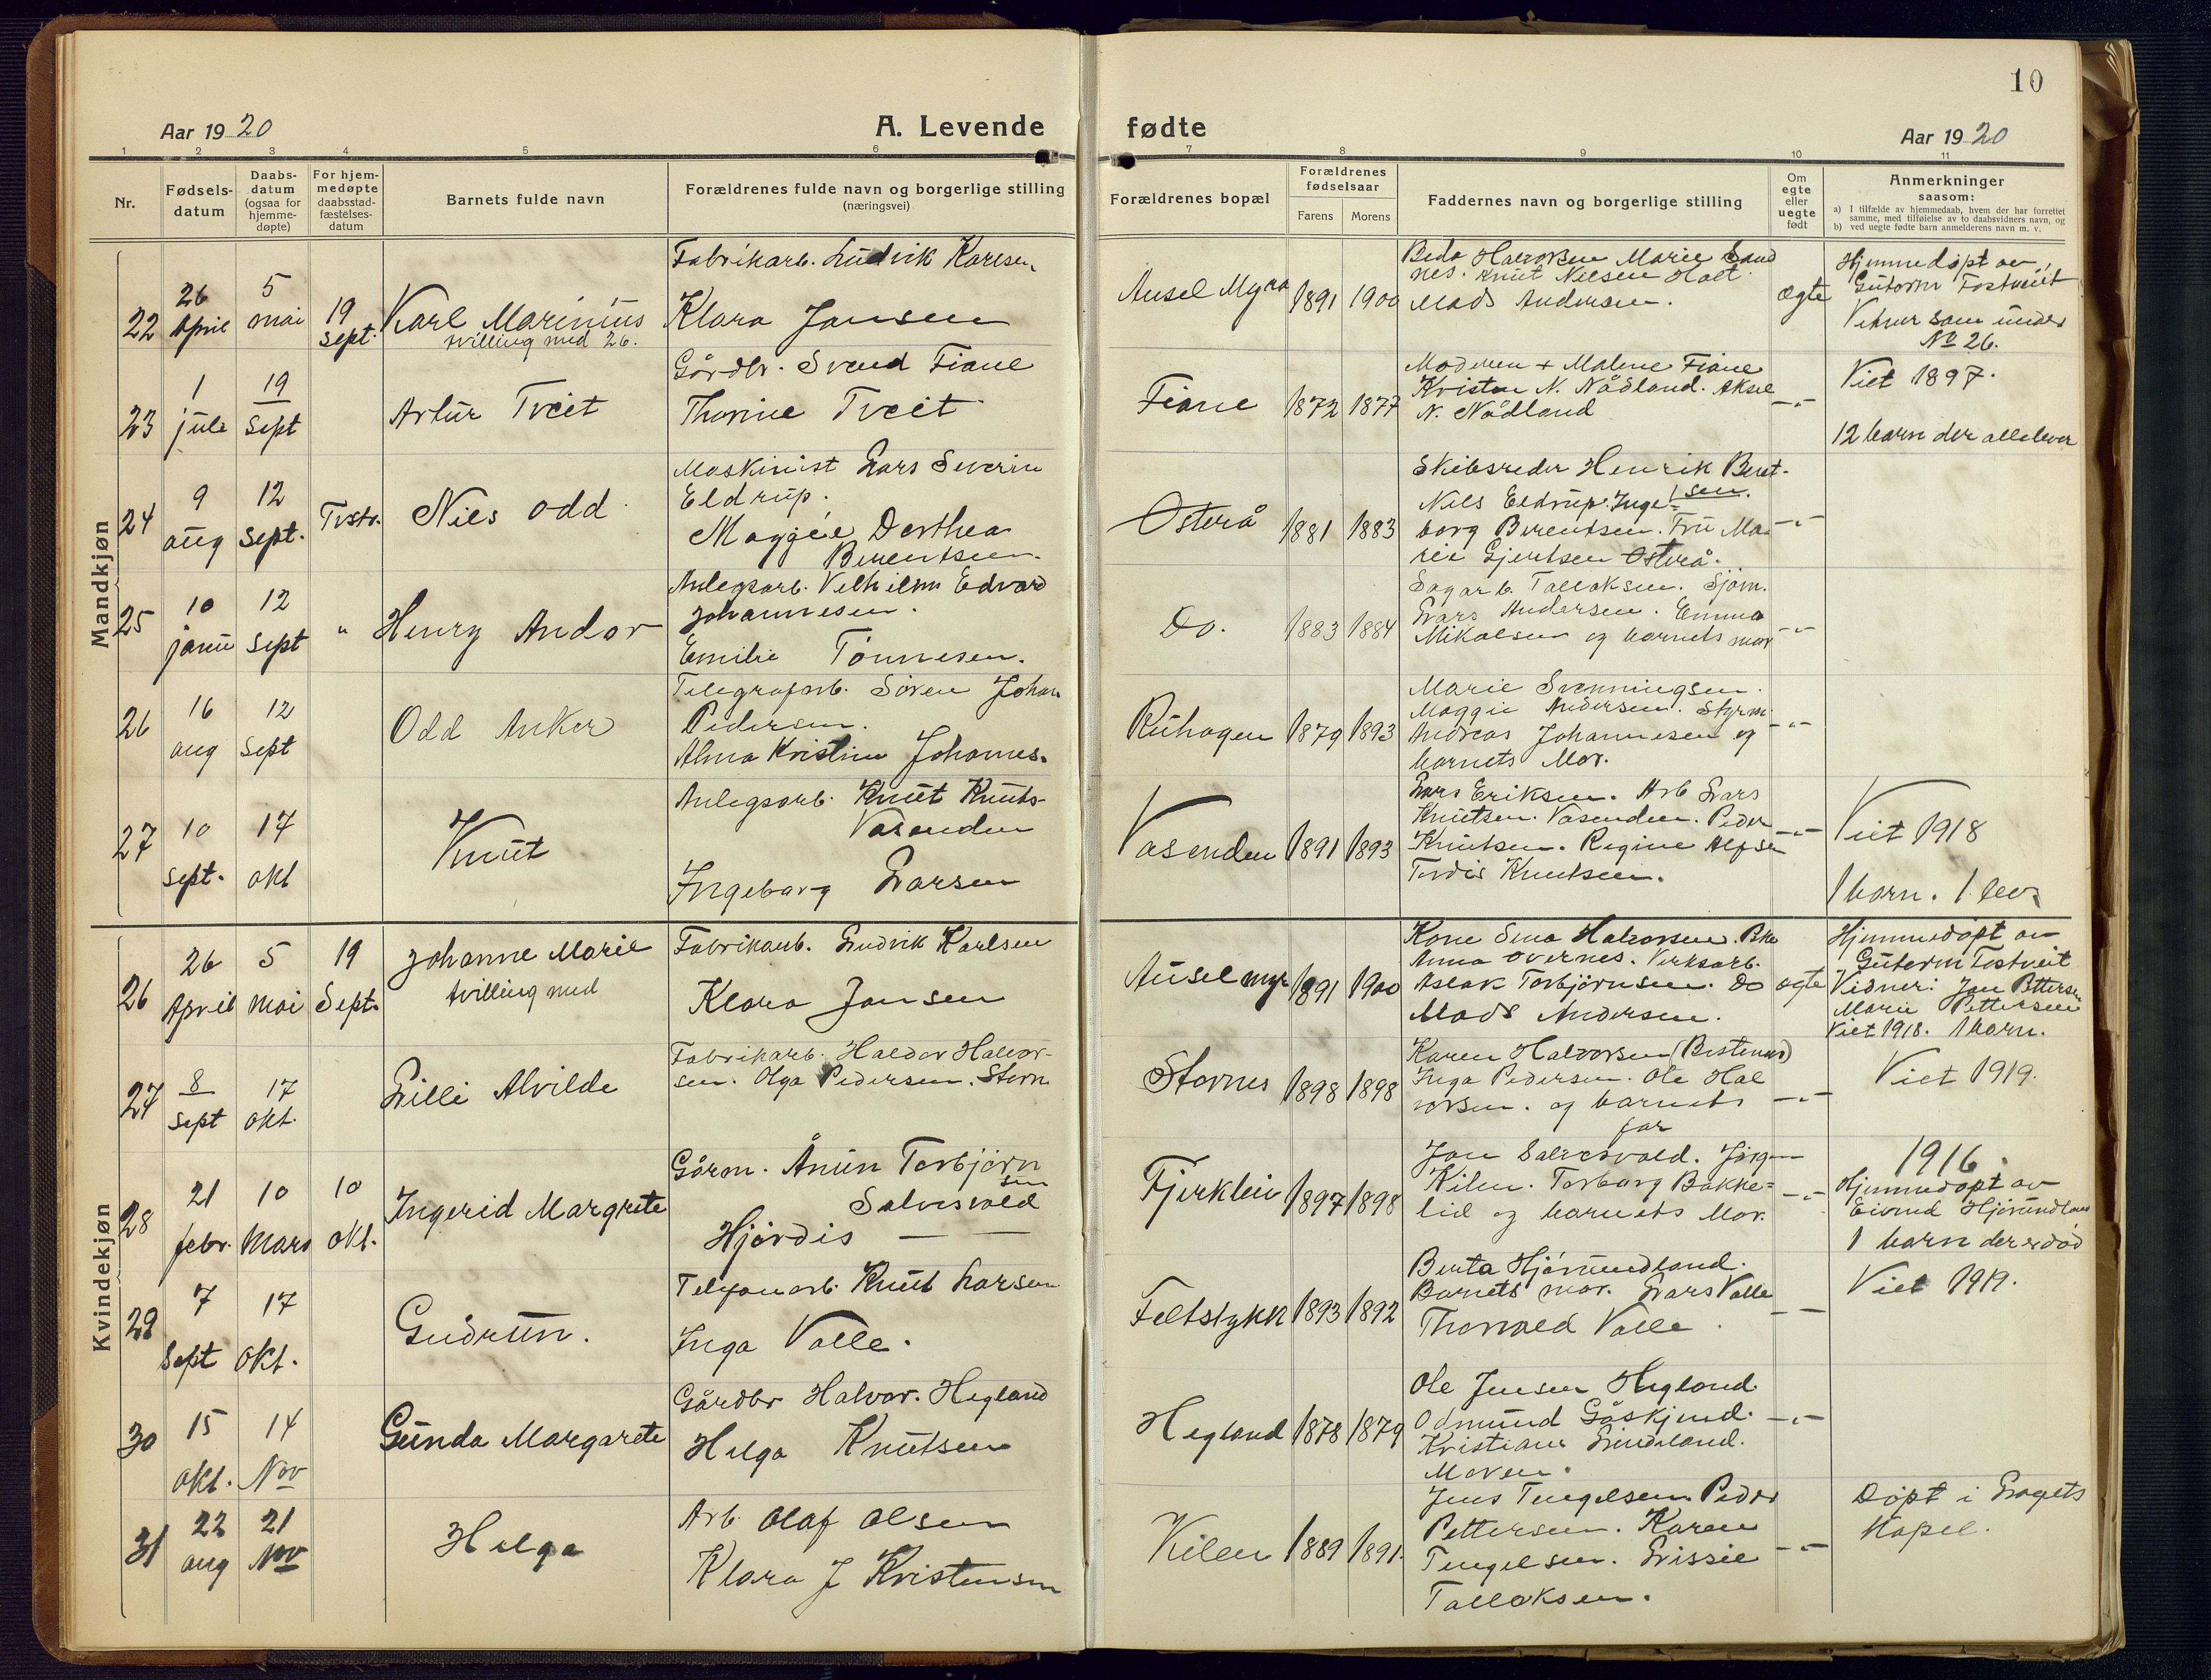 10
Aar 1920
A. Levende
fødte
Aar 1920
1 2 3 4 5 6 7 8 9 10 11
Nr.
Fødsels-
datum
Daabs-
datum
(ogsaa for
hjemme-
døpte)
For hjem-
medøpte
daabsstad-
fæstelses-
datum
Barnets fulde navn
Forældrenes fulde navn og borgerlige stilling
(næringsvei)
Forældrenes bopæl
Forældrenes
fødselsaar
Farens Morens
Faddernes navn og borgerlige stilling
Om
egte
eller
uegte
født
Anmerkninger
saasom:
a) I tilfælde av hjemmedaab, hvem der har forrettet
samme, med tilføielse av to daabsvidners navn, og
b) ved uegte fødte barn anmelderens navn m. v.
Mandkjøn
22
26
April
5
mai
19
Sept.
Karl Marinius
tvilling med 26.
Fabrikarb. Ludvik Karlsen
Klara Jansen
Ausel Myra
1891 1900
Beda Halvorsen Marie Sand
nes. Knut Nilsen Holt
Mads Andersen.
ægte
Hjemmedøpt av
Gutorm Tostveit
Vidner som under
No 26.
23
1
juli
19
Sept
Artur Tveit
Gårdbr. Svend Fiane
Thorine Tveit
Fiane
1872 1877
Moderen + Malene Fiane
Kristen N. Nådland. Aksel
N. Nådland
-"-
Viet 1897.
12 barn der alle lever
24
9
aug
12
Sept.
Tvstr.
Niels Odd
Maskinist Lars Severin
Eldrup.
Maggie Dorthea
Berentsen.
Osterå
1881 1883
Skibsreder Henrik Berent-
sen.
Nils Eldrup. Inge-
borg Berentsen. Fru Ma-
rie Gjertsen Osterå.
-"-
25
10
januu
12
Sept
"
Henry Andor
Anlegsarb. Vilhelm Edvard
Johannesen.
Emilie Tønnesen.
Do.
1883 1884
Sagarb. Tallaksen. Sjøm.
Lars Andersen. Emma
Mikalsen og barnets mor
-"-
26
16
aug
12
Sept
Odd Anker
Telegrafarb. Søren Johan
Pedersen.
Alma Kristine Johannes.
Ruhagen
1879 1893
Marie Svenningsen.
Maggie Andersen. Styrm.
Andreas Johannesen og
barnets Mor.
-"-
27
10
Sept.
17
Okt
Knut
Anlegsarb. Knut Knuts-
Vasenden
Ingeborg Larsen
Vasenden
1891 1893
Lars Eriksen. Arb Lars
Knutsen. Vasenden. Peder
Knutsen. Regine Alfsen
Tordis Knutsen.
-"-
Viet 1918
1 barn. 1 lev.
Kvindekjøn
26
26
April
5
mai
19
Sept.
Johanne Marie
tvilling med
Fabrikarb. Ludvik Karlsen
Klara Jansen
Ausel myr
1891 1900
Kone Sina Halvorsen.
Anna Overnes. Verksarb.
Aslak Torbjørnsen. Do
Mads Andersen.
ægte
Hjemmedøpt av
Gutorm Tostveit
Vidner: Jan Pettersen
Marie Pettersen
Viet 1918. 1 barn.
27
8
Sept
17
Okt.
Lilli Alvilde
Fabrikarb. Haldor Halvor-
sen. Olga Pedersen. Storn
Stornes
1898 1898
Karen Halvorsen (Bestemor)
Inga Pedersen. Ole Hal
vorsen. og barnets
far
-"-
Viet 1919.
28
21
febr.
10
Mars
10
Okt.
Ingerid Margrete
Gårm. Ånun Torbjørn
sen
Salvesvold
Hjørdis — —
Fjerkleiv
1897 1898
Jan Salvesvold. Jørgen
Kilen. Torborg Bakke-
lid og barnets Mor.
-"-
1916.
Hjemmedøpt av
Eivind Hjorundland
1 barn der er død
29
7
Sept
17
Okt.
Gudrun.
Telefonarb. Knut Larsen
Inga Valle.
Feltstykk
1893 1892
Berta Hjorundland.
Barnets mor. Lars Valle
Thorvald Valle.
—
Viet 1919.
30
15
Okt.
14
Nov
Gunda Margarete
Gårdbr Halvor. Hegland
Helga Knutsen
Hegland
1878 1879
Ole Jensen Hegland
Odmund Gåskjend.
Kristiane Lindland.
Moren.
-"-
31
22
aug
21
Nov
Helga
Arb. Olaf Olsen
Klara J Kristensen
Kilen
1889 1891.
Jens Tengelsen. Peder
Pettersen. Karen
Tengelsen. Lissie
Tallaksen.
-"-
Døpt i Grogets
Kapel.